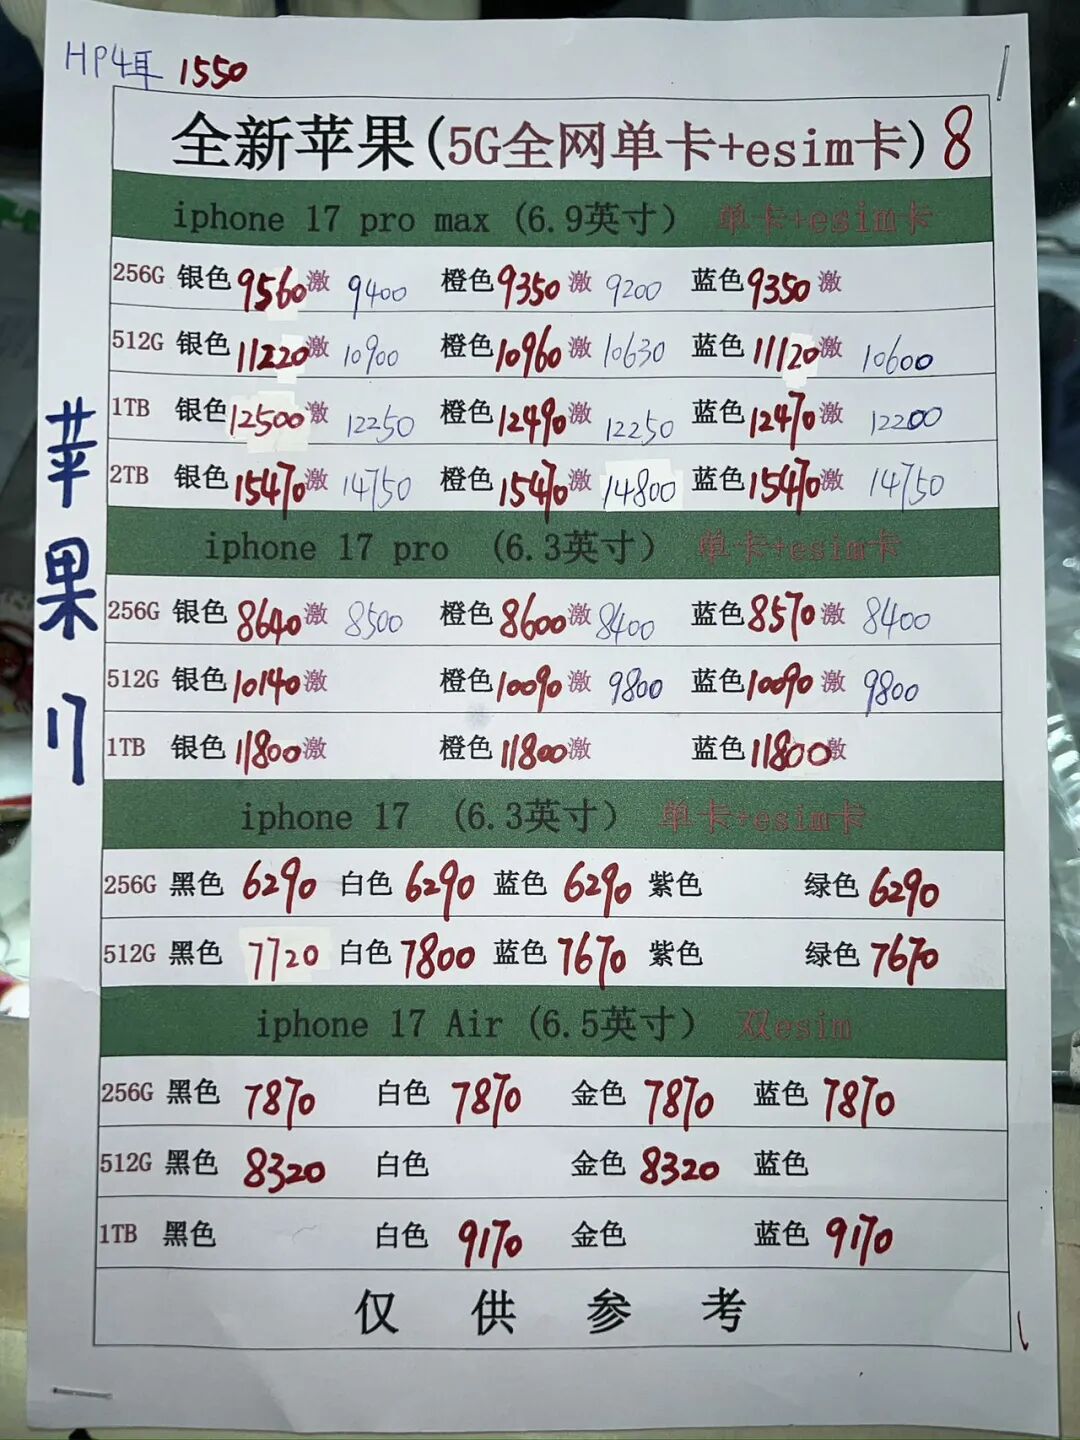 HP4耳 1550
全新苹果(5G全网单卡+esim卡) 8
iphone 17 pro max (6.9英寸) 单卡+esim卡
256G 银色 9560 激 9400 橙色 9350 激 9200 蓝色 9350 激
512G 银色 11220 激 10900 橙色 10960 激 10630 蓝色 11120 激 10600
1TB 银色 12500 激 12250 橙色 12490 激 12250 蓝色 12470 激 12200
2TB 银色 15470 激 14750 橙色 15470 激 14800 蓝色 15470 激 14750
苹果17
iphone 17 pro (6.3英寸) 单卡+esim卡
256G 银色 8640 激 8500 橙色 8600 激 8400 蓝色 8570 激 8400
512G 银色 10140 激 橙色 10090 激 9800 蓝色 10090 激 9800
1TB 银色 11800 激 橙色 11800 激 蓝色 11800 激
iphone 17 (6.3英寸) 单卡+esim卡
256G 黑色 6290 白色 6290 蓝色 6290 紫色 绿色 6290
512G 黑色 7720 白色 7800 蓝色 7670 紫色 绿色 7670
iphone 17 Air (6.5英寸) 双esim
256G 黑色 7870 白色 7870 金色 7870 蓝色 7870
512G 黑色 8320 白色 金色 8320 蓝色
1TB 黑色 白色 9170 金色 蓝色 9170
仅供参考